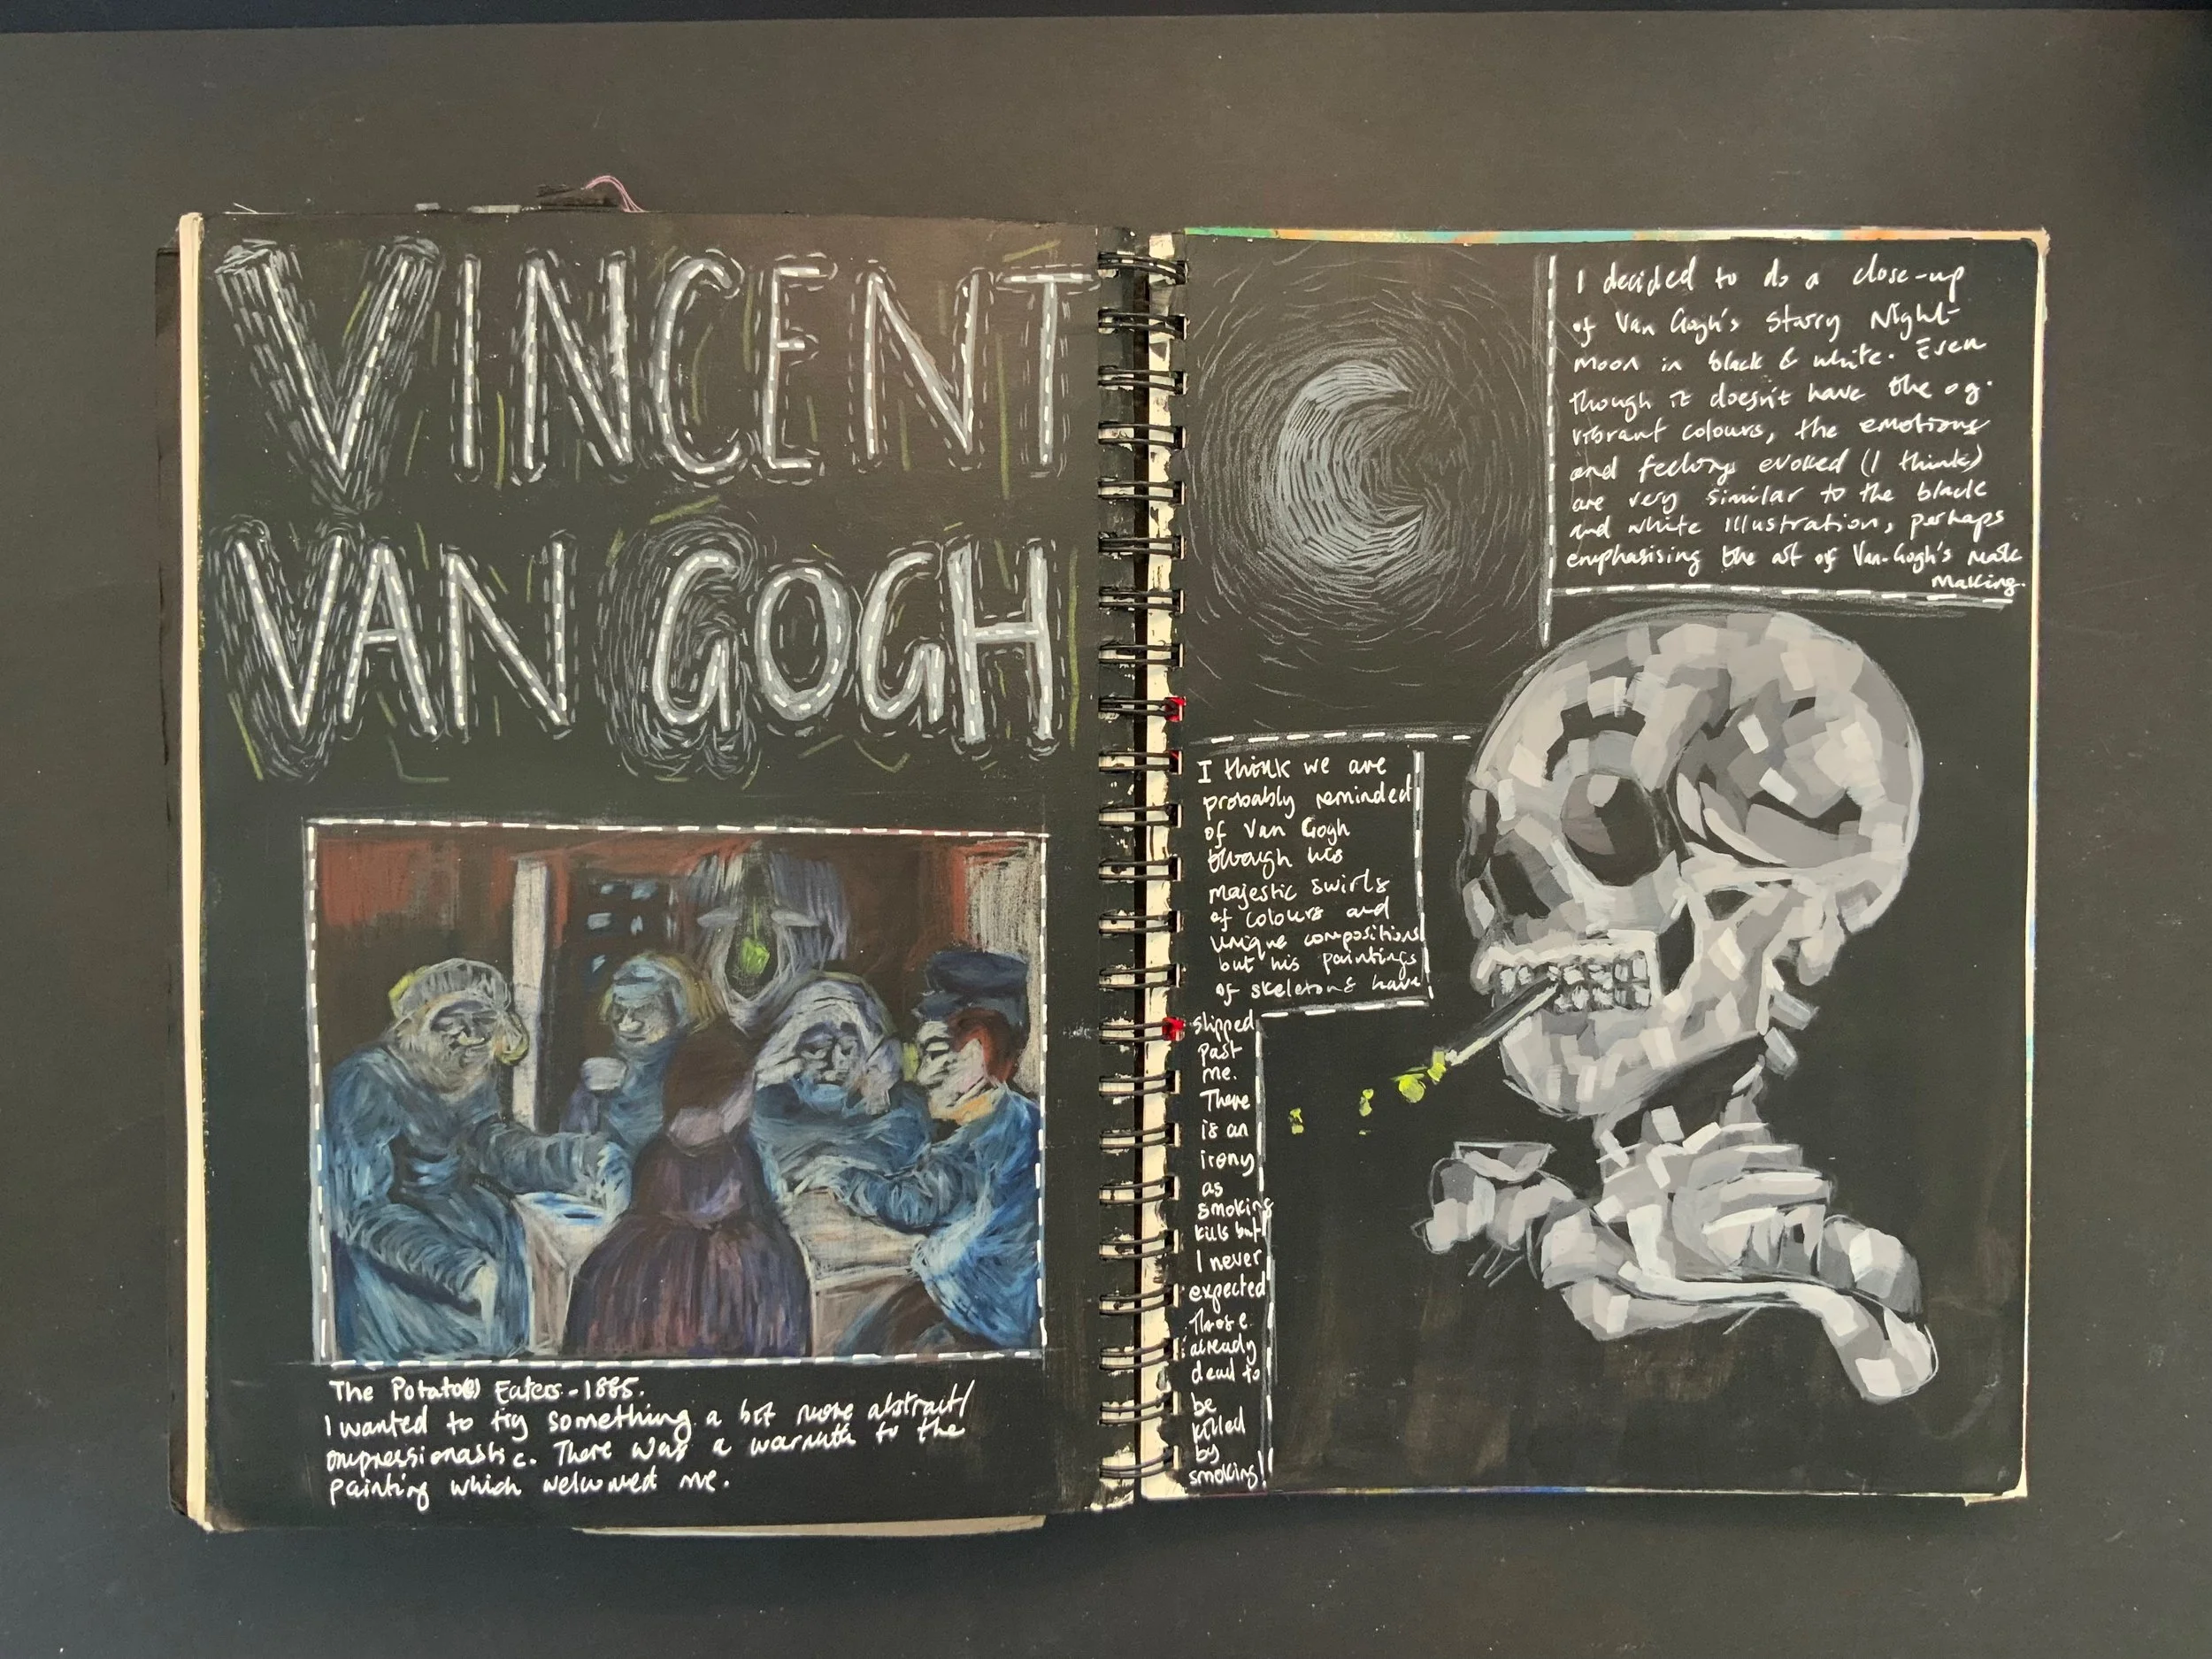 VINCENT
VAN GOGH
The Potato(e) Eaters - 1885.
I wanted to try something a bit more abstract/
impressionastic. There was a warmth to the
painting which welcomed me.
I decided to do a close-up
of Van Gogh's Starry Night-
moon in black & white. Even
though it doesn't have the og.
vibrant colours, the emotions
and feelings evoked (I think)
are very similar to the black
and white illustration, perhaps
emphasising the art of Van-Gogh's mark
making.
I think we are
probably reminded
of Van Gogh
through his
majestic swirls
of colours and
unique compositions
but his paintings
of skeletons have
slipped
past
me.
There
is an
irony
as
smoking
kills but
I never
expected
those
already
dead to
be
killed
by
smoking!!